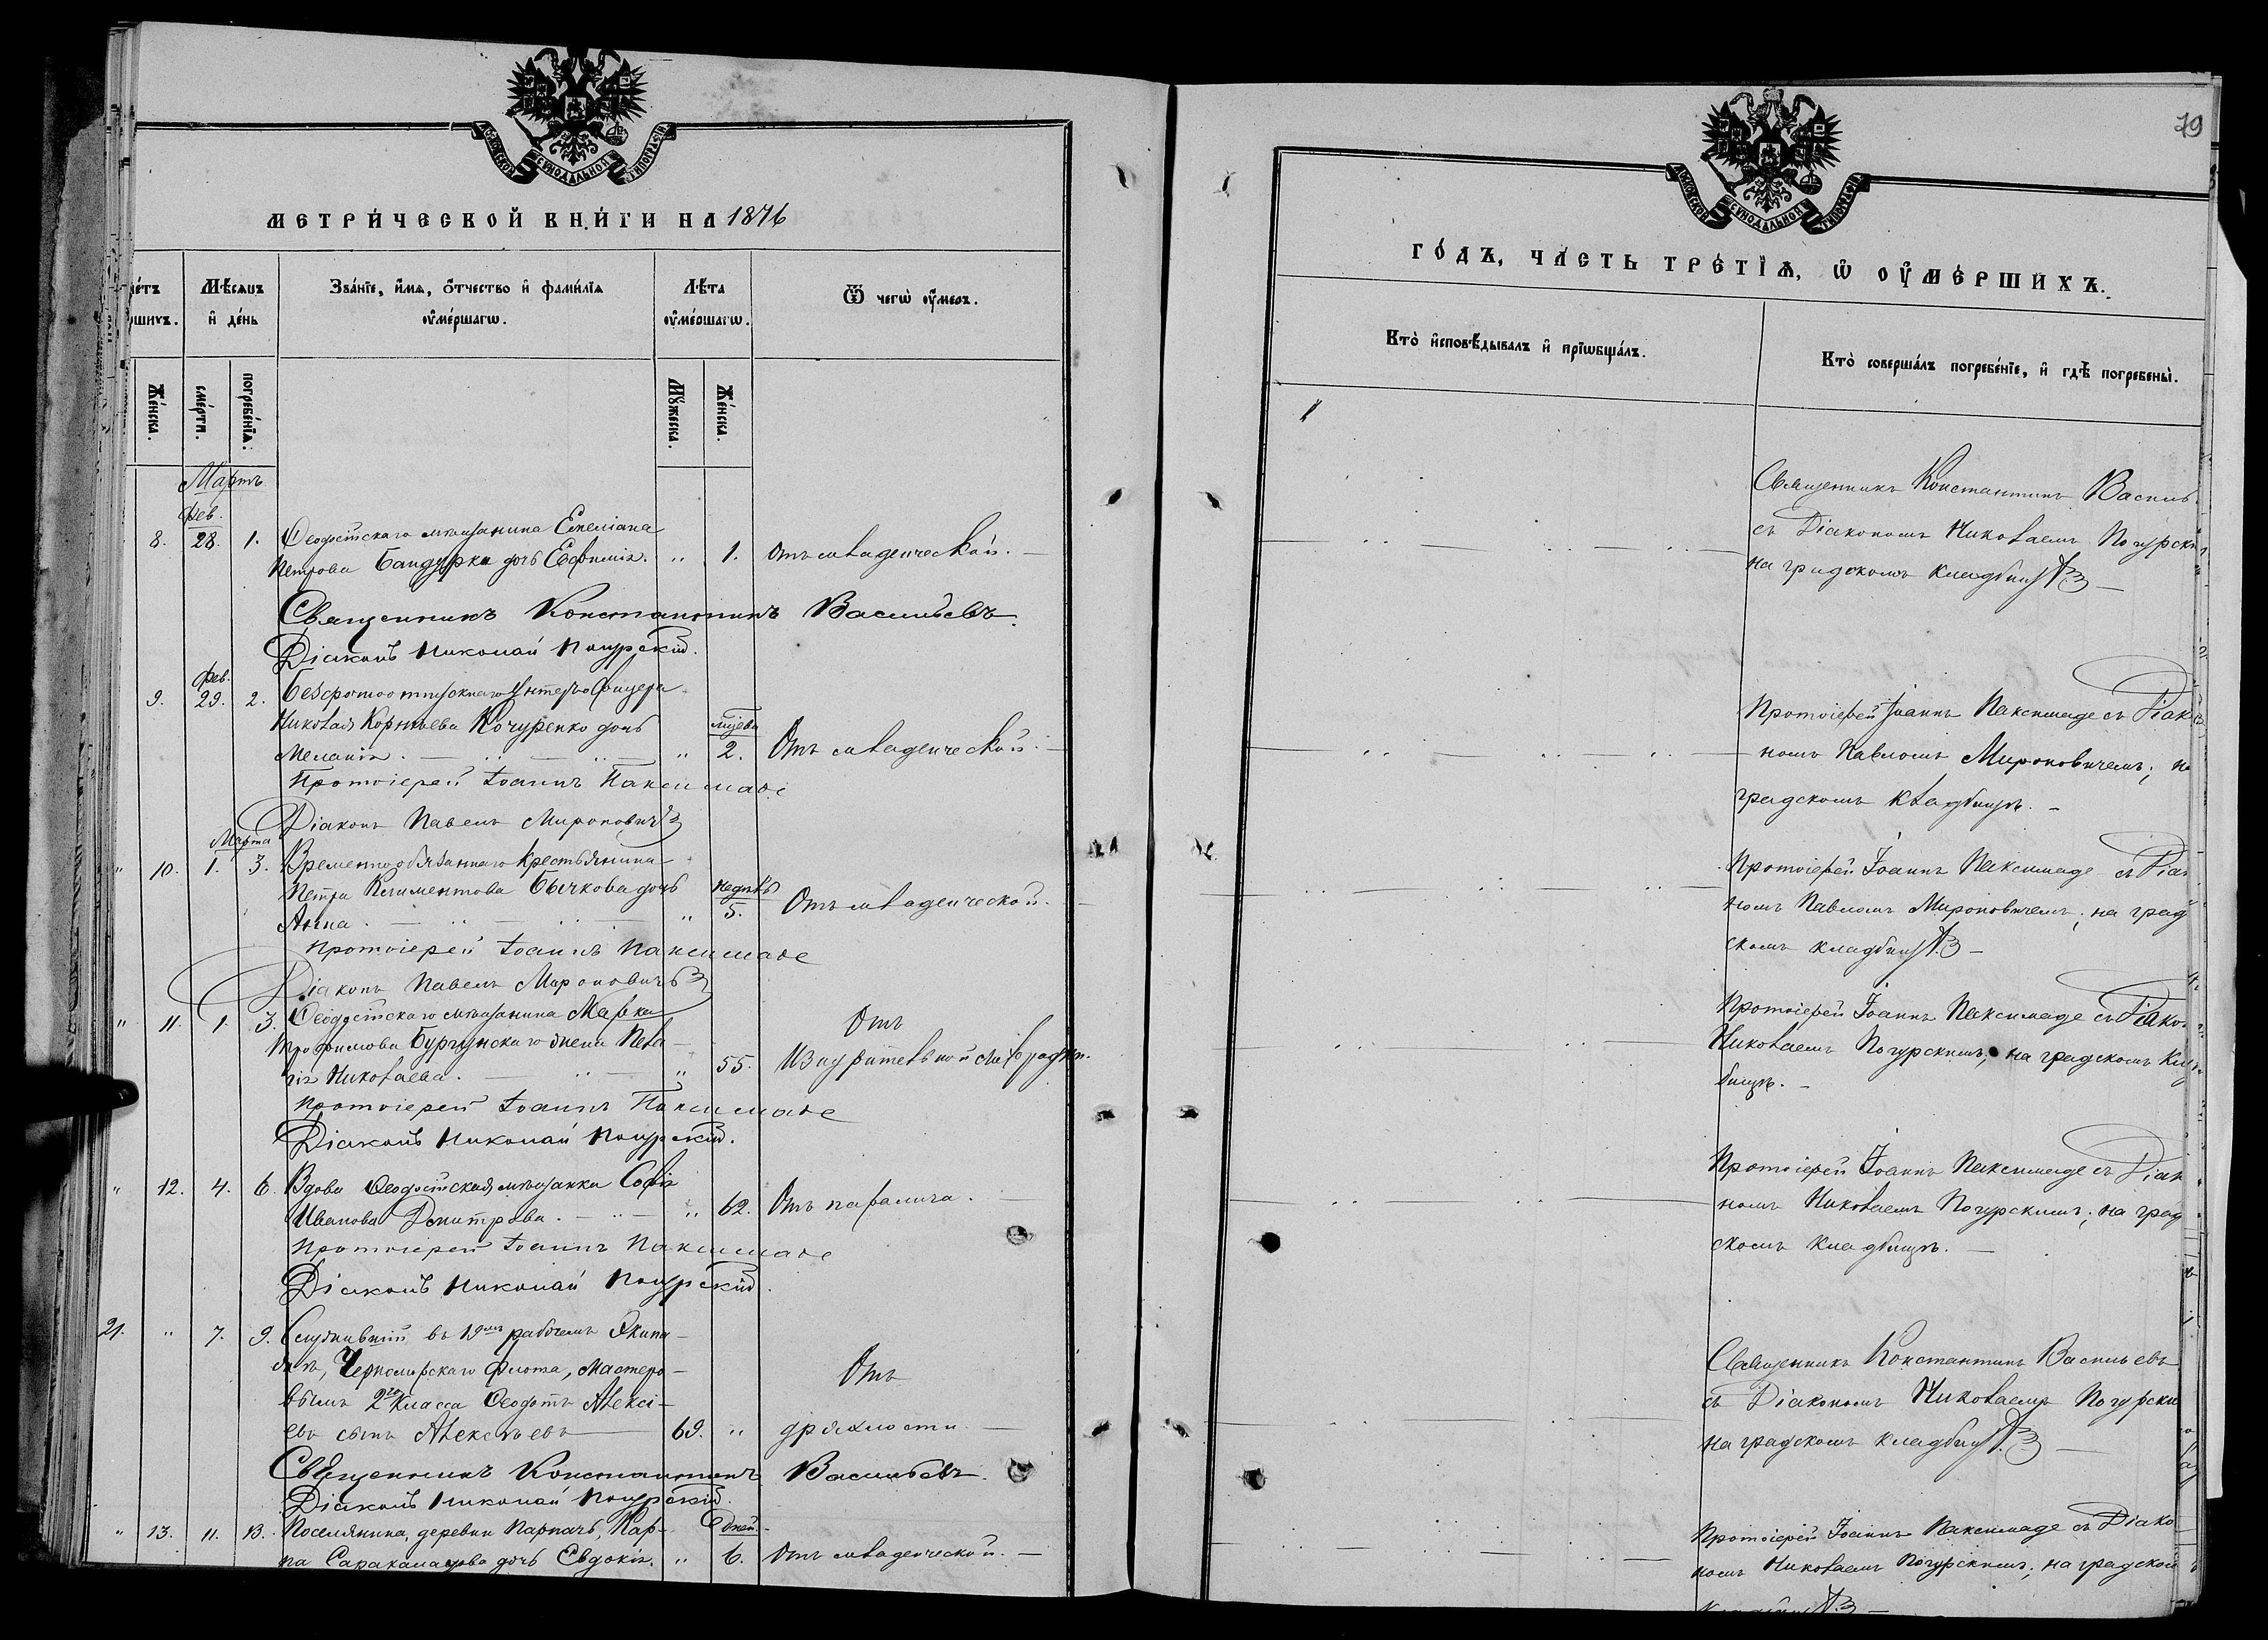 МОСКОВСКОЙ СѴНОДАЛЬНОЙ ТИПОГРАФІИ
МЕТРИ́ЧЕСКОЙ КНИ́ГИ НА 1876
Мѣсяцъ и҆ де́нь
Зва́нїе, и҆́мѧ, ѻ҆́тчество и҆ фами́лїѧ ᲂу҆ме́ршагѡ.
Лѣ́та ᲂу҆ме́ршагѡ.
Ѿ чегѡ̀ ᲂу҆́меръ.
Же́нска.
сме́рти.
погребе́нїѧ.
Мꙋ́жеска.
Же́нска.
Мартъ
Фев.
8. 28. 1. Ѳеодосійскаго мѣщанина Емеліана
Петрова Бандурка дочь Евфимія. „ 1. Отъ младенческой. —
Священникъ Константинъ Васильевъ.
Діаконъ Николай Погурскій.
Фев.
9. 29. 2. Безсрочноотпускнаго Унтеръ Офицера
Николая Корнѣева Кочуренко дочь
Меланія. „ 2. Отъ младенческой. —
Протоіерей Іоаннъ Паксимаде
Діаконъ Павелъ Мироновичъ
Марта
„ 10. 1. 3. Временнообязаннаго крестьянина
Петра Климентова Бычкова дочь недѣль
Анна. „ 5. Отъ младенческой.
Протоіерей Іоаннъ Паксимаде
Діаконъ Павелъ Мироновичъ
„ 11. 1. 3. Ѳеодосійскаго мѣщанина Марка Отъ
Трофимова Бургунскаго жена Пела-
гія Николаева. „ 55. Изнурительной лихорадки.
Протоіерей Іоаннъ Паксимаде
Діаконъ Николай Погурскій.
„ 12. 4. 6. Вдова Ѳеодосійская мѣщанка Софія
Иванова Дмитрова. „ 62. Отъ паралича.
Протоіерей Іоаннъ Паксимаде
Діаконъ Николай Погурскій.
21. „ 7. 9. Служившій въ 19мъ рабочемъ Экипа-
жѣ, Черноморскаго флота, мастеро- Отъ
вымъ 2го класса Ѳеодотъ Алексі-
евъ сынъ Алексѣевъ 69. „ дряхлости —
Священникъ Константинъ Васильевъ.
Діаконъ Николай Погурскій.
„ 13. 11. 13. Поселянина, деревни Парпачъ, Кар- дней
па дочь Евдокія. „ 6. Отъ младенческой. —
79
МОСКОВСКОЙ СѴНОДАЛЬНОЙ ТИПОГРАФІИ
ГО́ДЪ, ЧАСТЬ ТРЕ́ТЇѦ, Ѡ҆ ОУ҆МЕ́РШИХЪ.
Кто̀ и҆сповѣ́дывалъ и҆ прїѡбща́лъ.
Кто̀ соверша́лъ погребе́нїе, и҆ гдѣ̀ погребены̀.
Священникъ Константинъ Василь
съ Діакономъ Николаемъ Погурски
на градскомъ кладбищѣ —
Протоіерей Іоаннъ Паксимаде съ Діако
номъ Павломъ Мироновичемъ; на
градскомъ кладбищѣ. —
Протоіерей Іоаннъ Паксимаде съ Діа
номъ Павломъ Мироновичемъ; на град
скомъ кладбищѣ —
Протоіерей Іоаннъ Паксимаде съ Діако
Николаемъ Погурскимъ; на градскомъ клад
бищѣ. —
Протоіерей Іоаннъ Паксимаде съ Діак
номъ Николаемъ Погурскимъ; на град
скомъ кладбищѣ. —
Священникъ Константинъ Васильевъ
съ Діакономъ Николаемъ Погурски
на градскомъ кладбищѣ —
Протоіерей Іоаннъ Паксимаде съ Діако
номъ Николаемъ Погурскимъ; на градском
кладбищѣ —